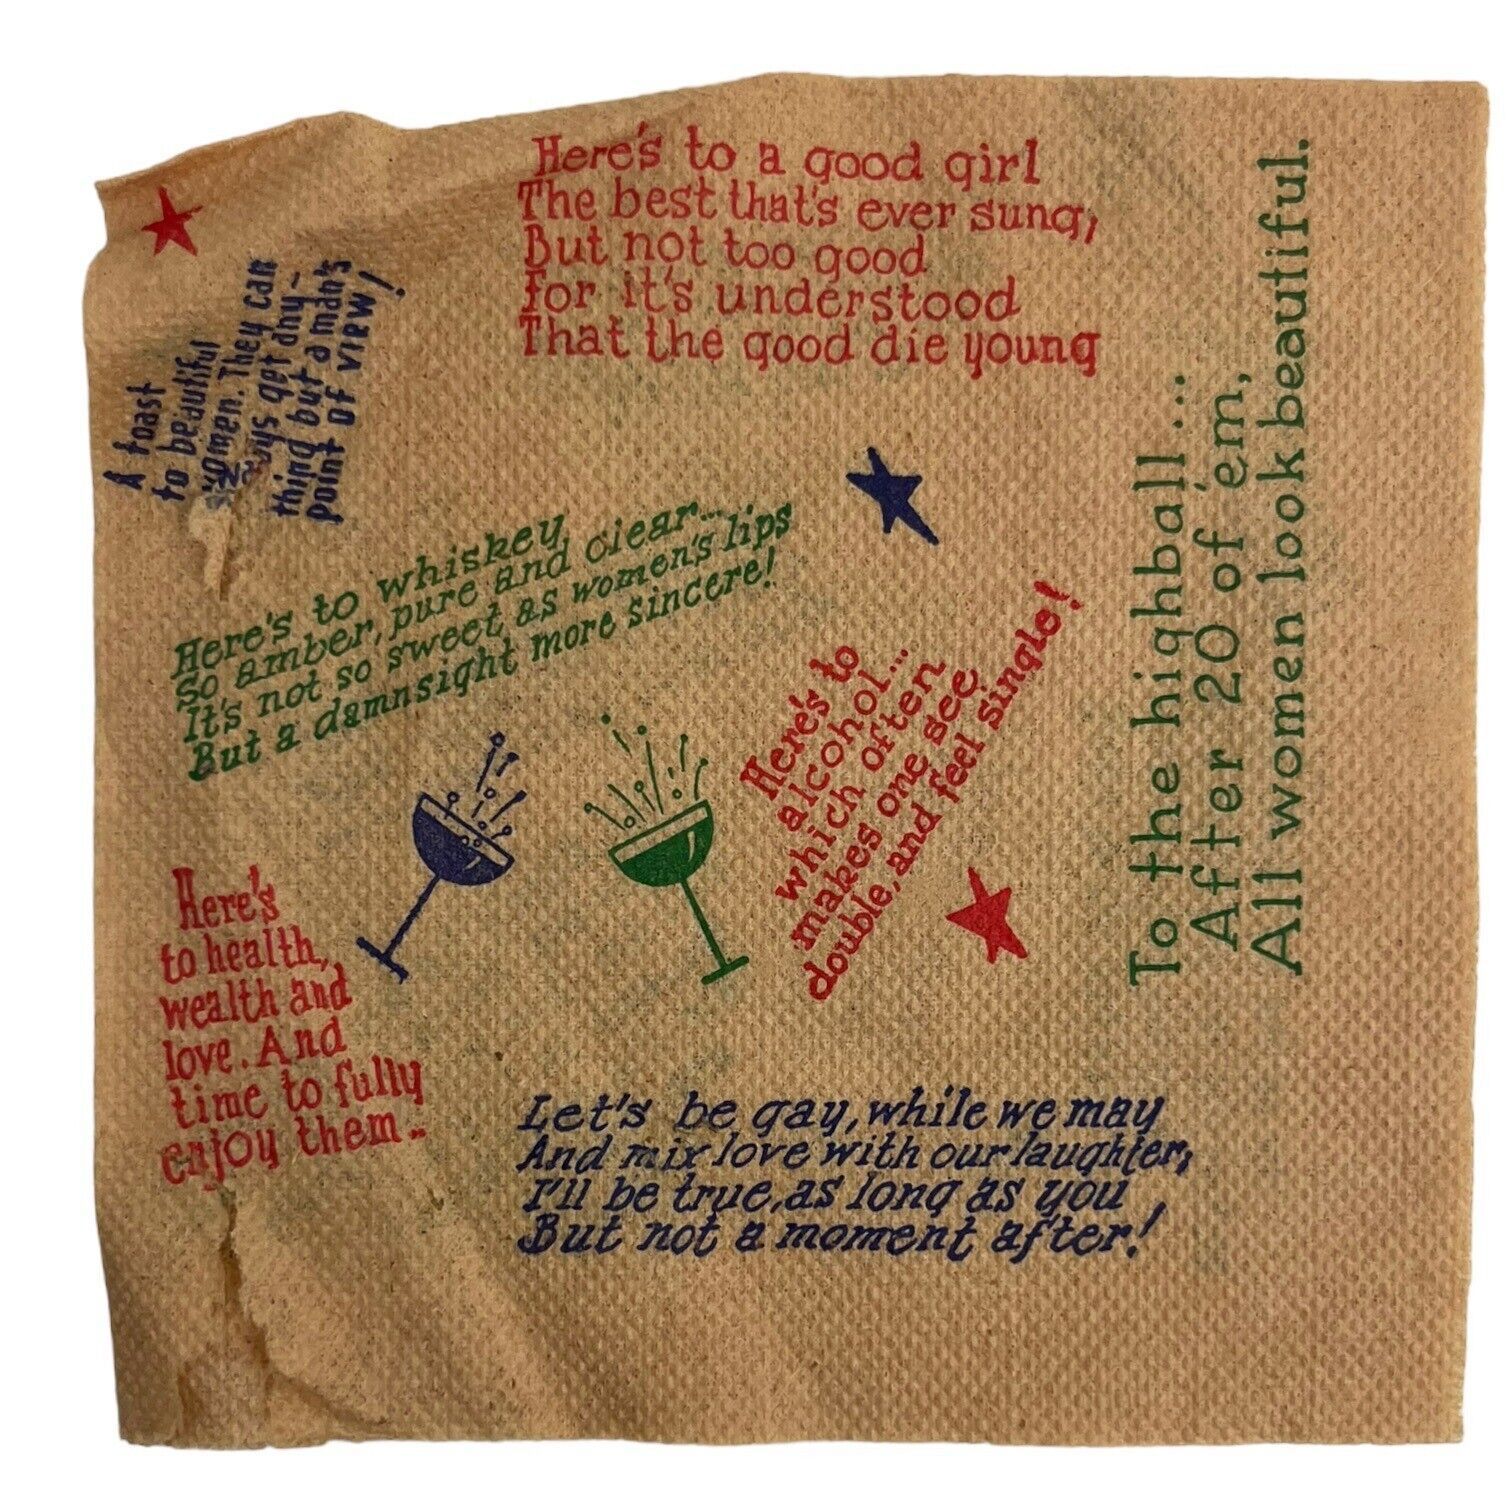 Here's to a good girl
The best that's ever sung,
But not too good
for it's understood
That the good die young
A toast
to beautiful
women. They can
always get any-
thing but a man's
point of view!
Here's to whiskey,
So amber, pure and clear...
It's not so sweet as women's lips
But a damnsight more sincere!
Here's to
alcohol...
which often
makes one see
double, and feel single!
To the highball...
After 20 of 'em,
All women look beautiful.
Here's
to health,
wealth and
love. And
time to fully
enjoy them..
Let's be gay, while we may
And mix love with our laughter,
I'll be true, as long as you
But not a moment after!